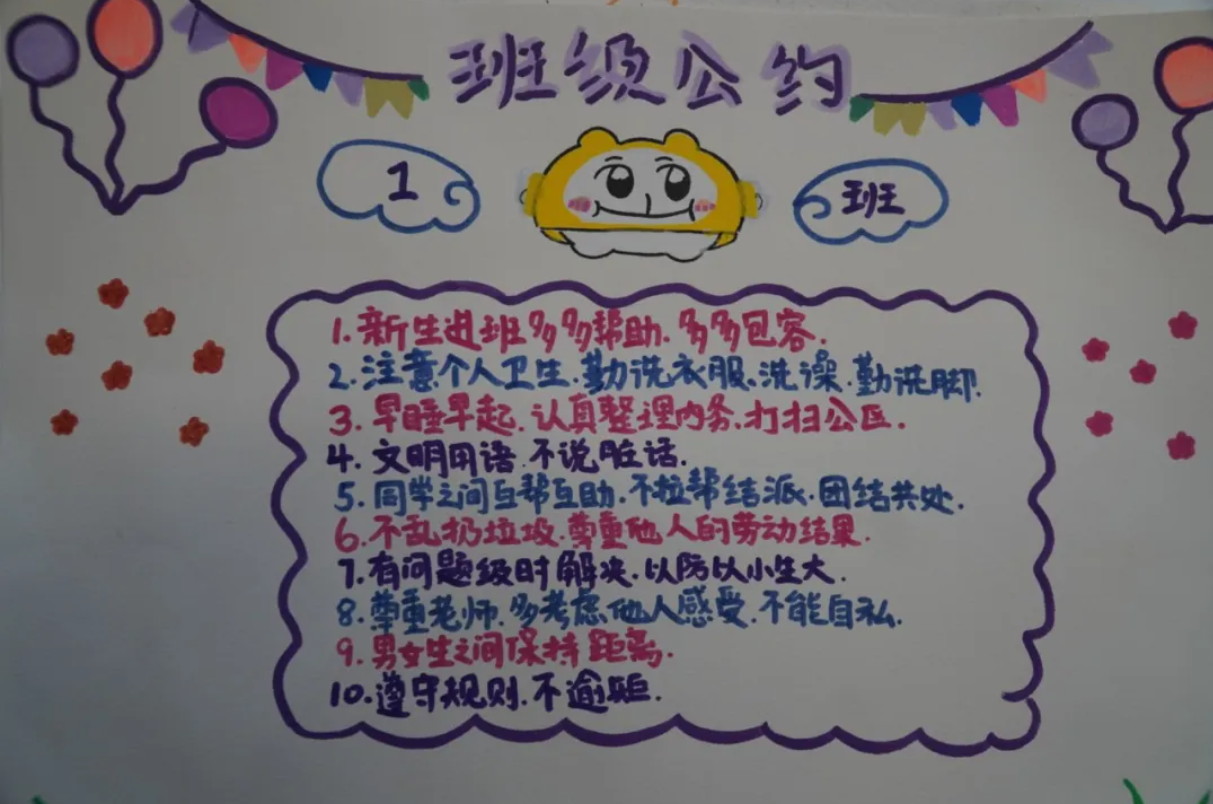 班级公约
1 班
1.新生进班多多帮助.多多包容.
2.注意个人卫生.勤洗衣服.洗澡.勤洗脚.
3.早睡早起.认真整理内务.打扫公区.
4.文明用语.不说脏话.
5.同学之间互帮互助.不拉帮结派.团结共处.
6.不乱扔垃圾.尊重他人的劳动结果.
7.有问题级时解决.以防以小生大.
8.尊重老师.多考虑他人感受.不能自私.
9.男女生之间保持距离.
10.遵守规则.不逾矩.